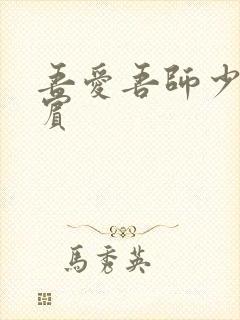 吾愛吾師少
賓
馬秀英